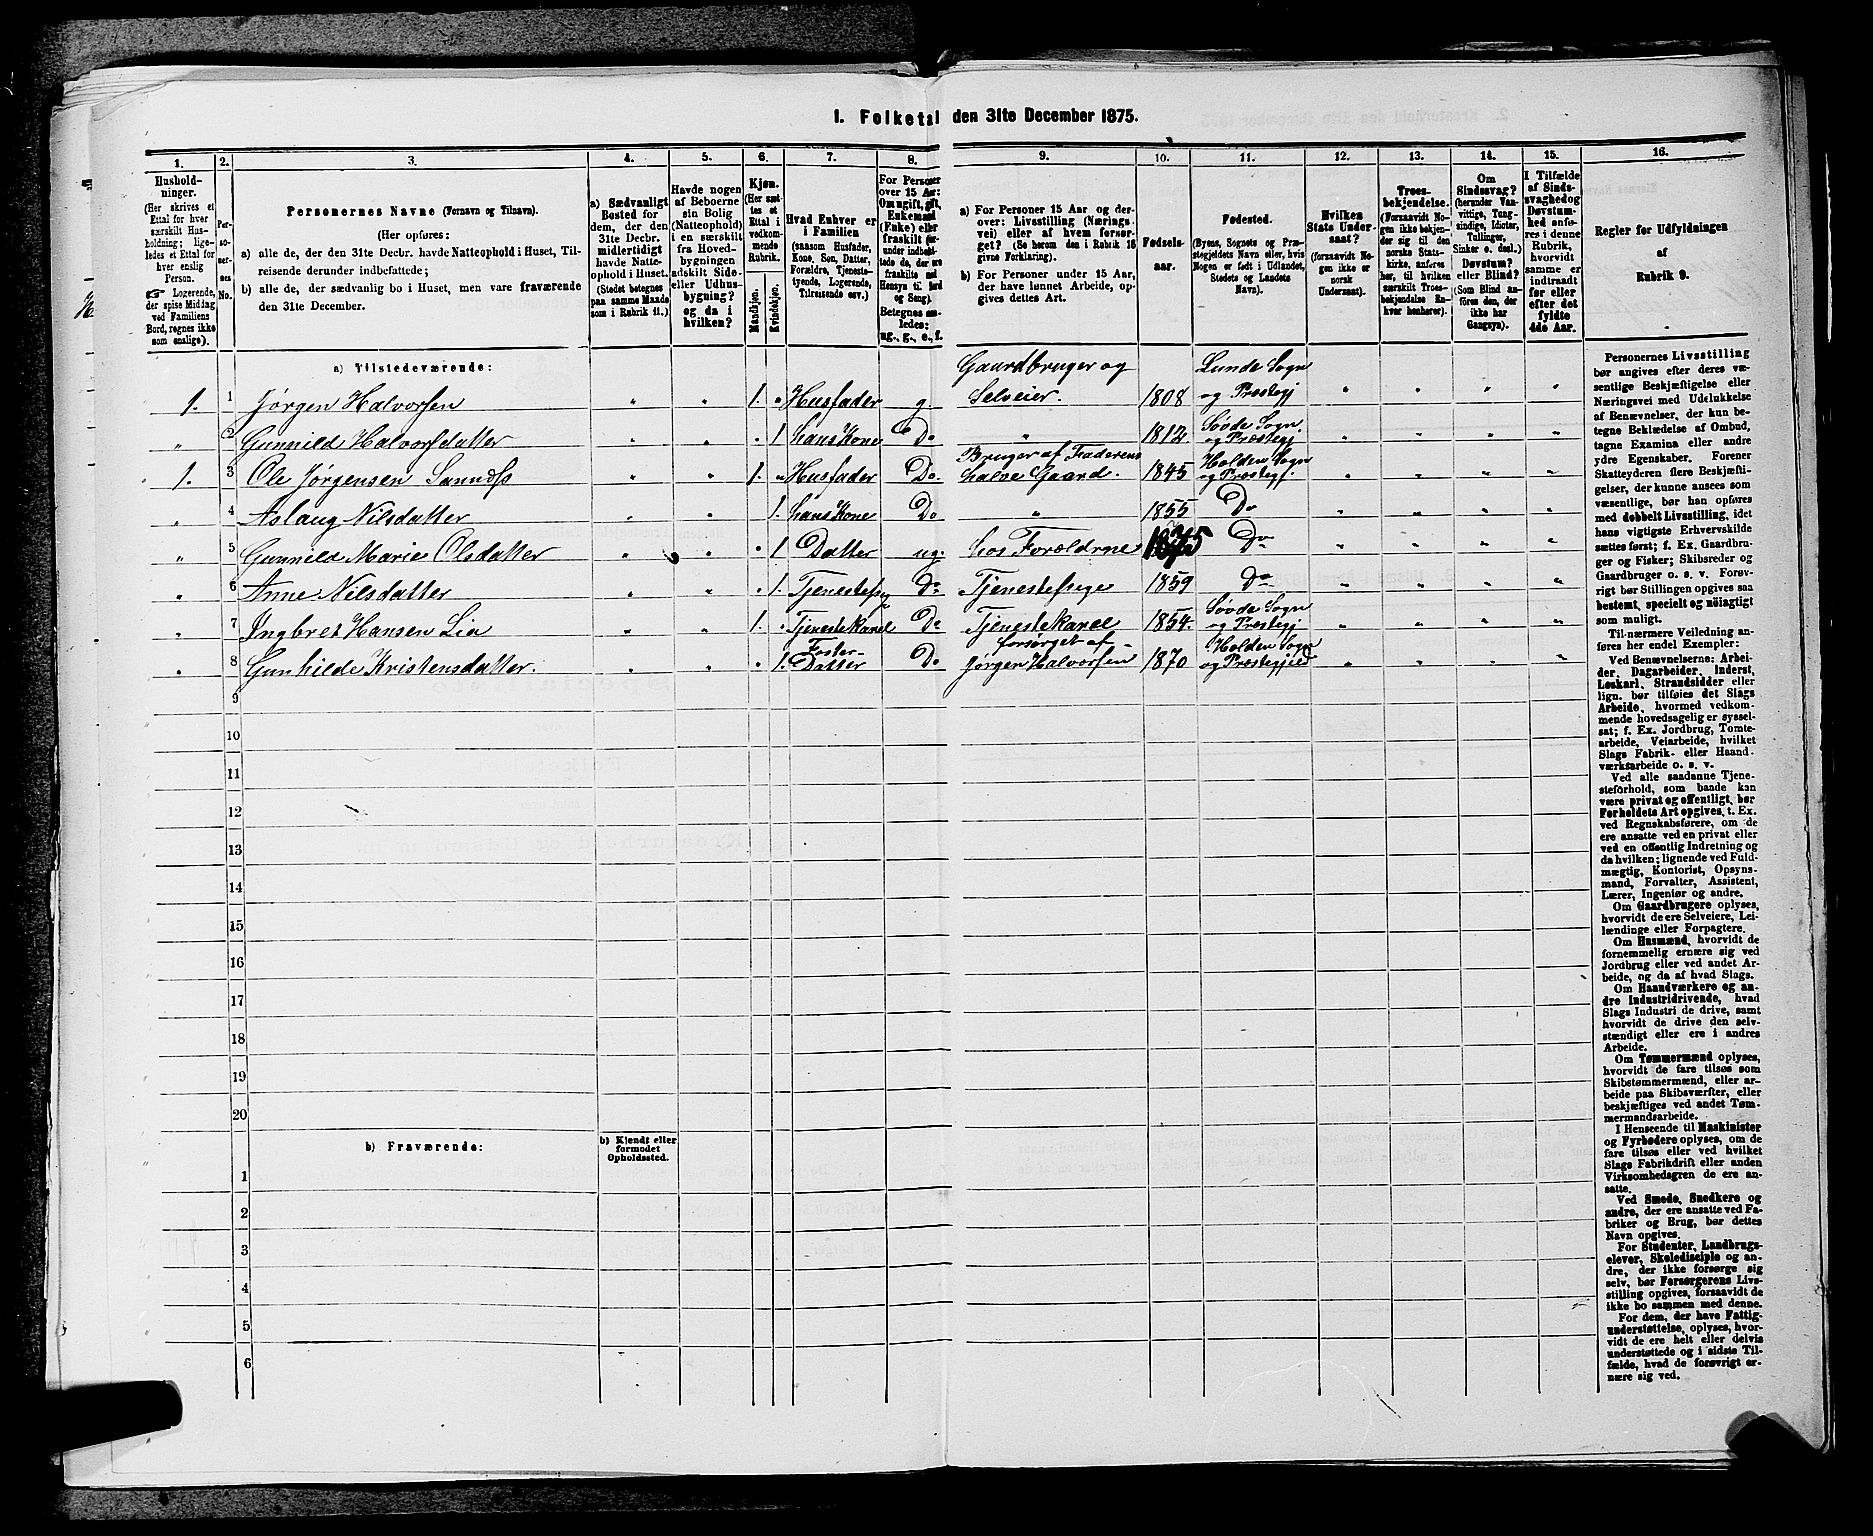 I. Folketal den 31te December 1875.
1. 2. 3. 4. 5. 6. 7. 8. 9. 10. 11. 12. 13. 14. 15. 16.
Hushold-
ninger.
(Her skrives et
Ettal for hver
særskilt Hus-
holdning; lige-
ledes et Ettal for
hver enslig
Person.
☞ Logerende,
der spise Middag
ved Familiens
Bord, regnes ikke
som enslige).
Per-
so-
ner-
nes
No.
Personernes Navne (Fornavn og Tilnavn).
(Her opføres:
a) alle de, der den 31te Decbr. havde Natteophold i Huset, Til-
reisende derunder indbefattede;
b) alle de, der sædvanlig bo i Huset, men vare fraværende
den 31te December.
a) Sædvanligt
Bosted for
dem, der den
31te Decbr.
midlertidigt
havde Natte-
ophold i Huset.
(Stedet betegnes
paa samme Maade
som i Rubrik 11.)
Havde nogen
af Beboerne
sin Bolig
(Natteophold)
i en særskilt
fra Hoved-
bygningen
adskilt Side-
eller Udhus-
bygning?
og da i
hvilken?
Kjøn.
(Her sæt-
tes et
Ettal i
vedkom-
mende
Rubrik.
Mandkjøn.
Kvindekjøn.
Hvad Enhver er
i Familien
(saasom Husfader,
Kone, Søn, Datter,
Forældre, Tjeneste-
tyende, Logerende,
Tilreisende osv.)
For Personer
over 15 Aar:
Om ugift, gift,
Enkemand
(Enke) eller
fraskilt (der-
under indbefat-
tede de, der ere
fraskilte med
Hensyn til Bord
og Seng).
Betegnes saa-
ledes:
ug., g., e., f.
a) For Personer 15 Aar og der-
over: Livsstilling (Nærings-
vei) eller af hvem forsør-
get? (Se herom den i Rubrik 16
givne Forklaring).
b) For Personer under 15 Aar,
der have lønnet Arbeide, op-
gives dettes Art.
Fødsels-
aar.
Fødested.
(Byens, Sognets og Præ-
stegjeldets Navn eller, hvis
Nogen er født i Udlandet,
Stedets og Landets
Navn).
Hvilken
Stats Under-
saat?
(forsaavidt No-
gen ikke er
norsk
Undersaat).
Troes-
bekjendelse.
(Forsaavidt No-
gen ikke bekjen-
der sig til den
norske Stats-
kirke, anføres
her, til hvilken
særskilt Troes-
bekjendelse En-
hver henhører).
Om
Sindssvag?
(herunder Van-
vittige, Tung-
sindige, Idioter,
Tullinger,
Sinker o. desl.)
Døvstum?
eller Blind?
(Som Blind an-
føres den, der
ikke har
Gangsyn).
I Tilfælde
af Sinds-
svaghed og
Døvstum-
hed anfø-
res i denne
Rubrik,
hvorvidt
samme er
indtraadt
før eller
efter det
fyldte
4de Aar.
Regler for Udfyldningen
af
Rubrik 9.
a) Tilstedeværende:
1. 1 Jørgen Halvorsen " " 1. " Husfader g. Gaardbruger og Selveier. 1808 Lunde Sogn og Præstegj " " " "
" 2 Gunnild Halvorsdatter " " " 1 hans Kone Do " 1812 Søvde Sogn og Præstegj " " " "
1. 3 Ole Jørgensen Sannæss " " 1. " Husfader Do. Bruger af Faderens halve Gaard. 1845 Holden Sogn og Præstegj. " " " "
" 4 Aslaug Nilsdatter " " " 1. hans Kone Do " 1855 Do " " " "
" 5 Gunnild Marie Olsdatter " " " 1 Datter ug. hos Forældrne 1875 Do " " " "
" 6 Anne Nilsdatter " " " 1. Tjenestepige Do Tjenestepige 1859 Do " " " "
" 7 Ingbret Hansen Lia " " 1. " Tjenestekarel Do Tjenestekarel 1854. Søvde Sogn og Præstegj " " " "
" 8 Gunhilde Kristensdatter. " " " 1. Foster-Datter Do forsørget af Jørgen Halvorsen 1870 Holden Sogn og Præstegjeld " " " "
9
10
11
12
13
14
15
16
17
18
19
20
b) Fraværende:
b) Kjendt eller
formodet
Opholdssted.
1
2
3
4
5
6
Personernes Livsstilling
bør angives efter deres væ-
sentlige Beskjæftigelse eller
Næringsvei med Udelukkelse
af Benævnelser, der kun be-
tegne Beklædelse af Ombud,
tagne Examina eller andre
ydre Egenskaber. Forener
Skatteyderen flere Beskjæfti-
gelser, der kunne ansees som
væsentlige, bør han opføres
med dobbelt Livsstilling, idet
hans vigtigste Erhvervskilde
sættes først; f. Ex. Gaardbru-
ger og Fisker; Skibsreder og
Gaardbruger o. s. v. Forøv-
rigt bør Stillingen opgives saa
bestemt, specielt og nøiagtigt
som muligt.
Til nærmere Veiledning an-
føres her endel Exempler:
Ved Benævnelserne: Arbei-
der, Dagarbeider, Inderst,
Løskarl, Strandsidder eller
lign. bør tilføies det Slags
Arbeide, hvormed vedkom-
mende hovedsagelig er syssel-
sat; f. Ex. Jordbrug, Tomte-
arbeide, Veiarbeide, hvilket
Slags Fabrik- eller Haand-
værksarbeide o. s. v.
Ved alle saadanne Tjene-
steforhold, som baade kan
være privat og offentligt, bør
Forholdets Art opgives, t. Ex.
ved Regnskabsførere, om de
ere ansatte ved en privat eller
ved en offentlig Indretning og
da hvilken; lignende ved Fuld-
mægtig, Kontorist, Opsyns-
mand, Forvalter, Assistent,
Lærer, Ingeniør og andre.
Om Gaardbrugere oplyses,
hvorvidt de ere Selveiere, Lei-
lændinge eller Forpagtere.
Om Husmænd, hvorvidt de
fornemmelig ernære sig ved
Jordbrug eller ved andet Ar-
beide, og da af hvad Slags.
Om Haandværkere og an-
dre Industridrivende, hvad
Slags Industri de drive, samt
hvorvidt de drive den selv-
stændigt eller ere i andres
Arbeide.
Om Tømmermænd oplyses,
hvorvidt de fare tilsøs som
Skibstømmermænd, eller ar-
beide paa Skibsværfter, eller
beskjæftiges ved andet Tøm-
mermandsarbeide.
I Henseende til Maskinister
og Fyrbødere oplyses, om de
fare tilsøs eller ved hvilket
Slags Fabrikdrift eller anden
Virksomhedsgren de ere an-
satte.
Ved Smede, Snedkere og
andre, der ere ansatte ved Fa-
briker og Brug, bør dettes
Navn opgives.
For Studenter, Landbrugs-
elever, Skoledisciple og an-
dre, der ikke forsørge sig
selv, bør Forsørgerens Livs-
stilling opgives, forsaavidt de
ikke bo sammen med denne.
For dem, der have Fattig-
understøttelse, oplyses, hvor-
vidt de ere helt eller delvis
understøttede og i sidste Til-
fælde, hvad de forøvrigt er-
nære sig ved.